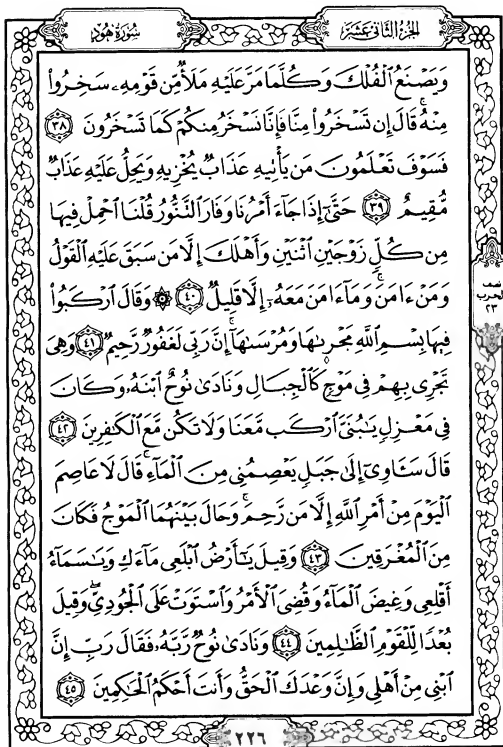 سُورَةُ هُودٍ
الجُزْءُ الثَّانِي عَشَرَ
وَيَصْنَعُ ٱلْفُلْكَ وَكُلَّمَا مَرَّ عَلَيْهِ مَلَأٌ مِّن قَوْمِهِۦ سَخِرُوا۟
مِنْهُۚ قَالَ إِن تَسْخَرُوا۟ مِنَّا فَإِنَّا نَسْخَرُ مِنكُمْ كَمَا تَسْخَرُونَ ٣٨
فَسَوْفَ تَعْلَمُونَ مَن يَأْتِيهِ عَذَابٌ يُخْزِيهِ وَيَحِلُّ عَلَيْهِ عَذَابٌ
مُّقِيمٌ ٣٩ حَتَّىٰٓ إِذَا جَآءَ أَمْرُنَا وَفَارَ ٱلتَّنُّورُ قُلْنَا ٱحْمِلْ فِيهَا
مِن كُلٍّ زَوْجَيْنِ ٱثْنَيْنِ وَأَهْلَكَ إِلَّا مَن سَبَقَ عَلَيْهِ ٱلْقَوْلُ
وَمَنْ ءَامَنَۚ وَمَآ ءَامَنَ مَعَهُۥٓ إِلَّا قَلِيلٌ ٤٠ ۞ وَقَالَ ٱرْكَبُوا۟
فِيهَا بِسْمِ ٱللَّهِ مَجْر۪ىٰهَا وَمُرْسَىٰهَآۚ إِنَّ رَبِّى لَغَفُورٌ رَّحِيمٌ ٤١ وَهِىَ
تَجْرِى بِهِمْ فِى مَوْجٍ كَٱلْجِبَالِ وَنَادَىٰ نُوحٌ ٱبْنَهُۥ وَكَانَ
فِى مَعْزِلٍ يَٰبُنَىَّ ٱرْكَب مَّعَنَا وَلَا تَكُن مَّعَ ٱلْكَٰفِرِينَ ٤٢
قَالَ سَـَٔاوِىٓ إِلَىٰ جَبَلٍ يَعْصِمُنِى مِنَ ٱلْمَآءِۚ قَالَ لَا عَاصِمَ
ٱلْيَوْمَ مِنْ أَمْرِ ٱللَّهِ إِلَّا مَن رَّحِمَۚ وَحَالَ بَيْنَهُمَا ٱلْمَوْجُ فَكَانَ
مِنَ ٱلْمُغْرَقِينَ ٤٣ وَقِيلَ يَٰٓأَرْضُ ٱبْلَعِى مَآءَكِ وَيَٰسَمَآءُ
أَقْلِعِى وَغِيضَ ٱلْمَآءُ وَقُضِىَ ٱلْأَمْرُ وَٱسْتَوَتْ عَلَى ٱلْجُودِىِّۖ وَقِيلَ
بُعْدًا لِّلْقَوْمِ ٱلظَّٰلِمِينَ ٤٤ وَنَادَىٰ نُوحٌ رَّبَّهُۥ فَقَالَ رَبِّ إِنَّ
ٱبْنِى مِنْ أَهْلِى وَإِنَّ وَعْدَكَ ٱلْحَقُّ وَأَنتَ أَحْكَمُ ٱلْحَٰكِمِينَ ٤٥
نصف
الحزب
٢٣
٢٢٦